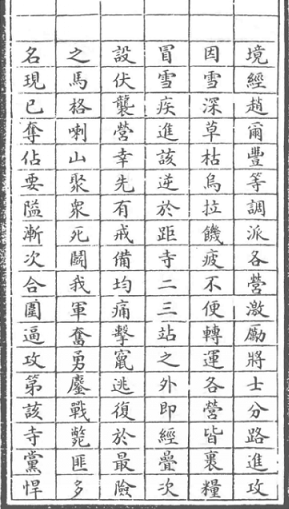 境經趙爾豐等調派各營激勵將士分路進攻
因雪深草枯烏拉饑疲不便轉運各營皆裹糧
冒雪疾進該逆於距寺二三站之外即經疊次
設伏襲營幸先有戒備均痛擊竄逃復於最險
之馬格喇山聚衆死鬪我軍奮勇鏖戰斃匪多
名現已奪佔要隘漸次合圍逼攻第該寺黨悍